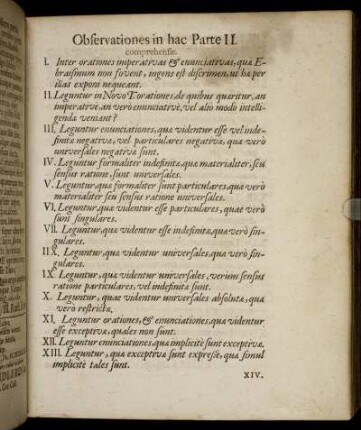 Observationes in hac Parte II.
comprehensæ.
I. Inter orationes imperativas & enunciativas, quæ E-
braismum non fovent, ingens est discrimen, ut hæ per
illas exponi nequeant.
II. Leguntur in Novo T. orationes, de quibus quæritur, an
imperativè, an verò enunciativè, vel alio modo intelli-
gendæ veniant?
III. Leguntur enunciationes, quæ videntur esse vel inde-
finitæ negativæ, vel particulares negativæ, quæ verò
universales negativæ sunt.
IV. Leguntur formaliter indefinitæ, quæ materialiter, seu
sensus ratione, sunt universales.
V. Leguntur, quæ formaliter sunt particulares, quæ verò
materialiter seu sensus ratione universales.
VI. Leguntur, quæ videntur esse particulares, quæ verò
sunt singulares.
VII. Leguntur, quæ videntur esse indefinitæ, quæ verò sin-
gulares.
IIX. Leguntur, quæ videntur universales, quæ verò sin-
gulares.
IX. Leguntur, quæ videntur universales, verùm sensus
ratione particulares, vel indefinitæ sunt.
X. Leguntur, quæ videntur universales absolutæ, quæ
verò restrictæ.
XI. Leguntur orationes, & enunciationes, quæ videntur
esse exceptivæ, quales non sunt.
XII. Leguntur enunciationes, quæ implicitè sunt exceptivæ.
XIII. Leguntur, quæ exceptivæ sunt expresse, quæ simul
implicitè tales sunt.
XIV.